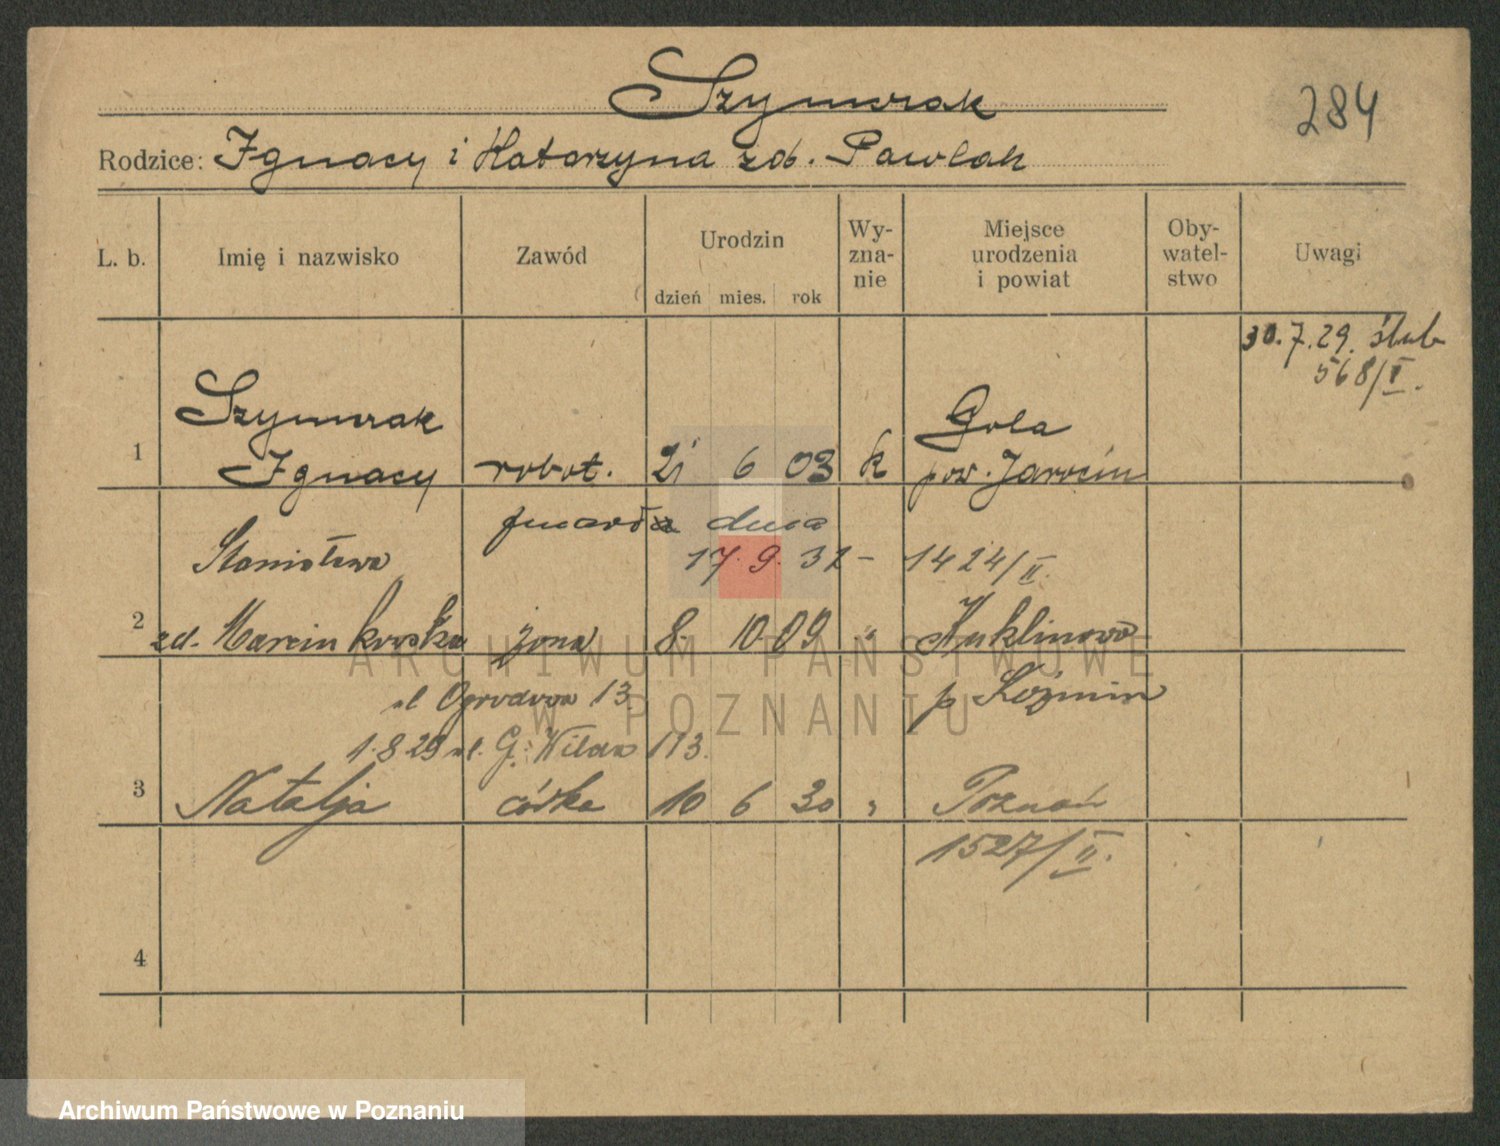 Szymurak
284
Rodzice: Ignacy i Katarzyna zd. Pawlak
L. b. Imię i nazwisko Zawód Urodzin dzień mies. rok Wy-zna-nie Miejsce urodzenia i powiat Oby-watel-stwo Uwagi
30.7.29. ślub
568/I.
Szymurak Gola
1 Ignacy robot. 21 6 03 k pow. Jarocin
zmarła dnia
Stanisława 17.9.31 – 1424/II.
2 zd. Marcinkowska żona 8. 10 09 " Kuklinowo
ul Ogrodowa 13. p Koźmin
1.8 29 ul. G. Wilda 113.
3 Natalja córka 10 6 30 " Poznań
1527/II.
4
ARCHIWUM PAŃSTWOWE
W POZNANIU
Archiwum Państwowe w Poznaniu